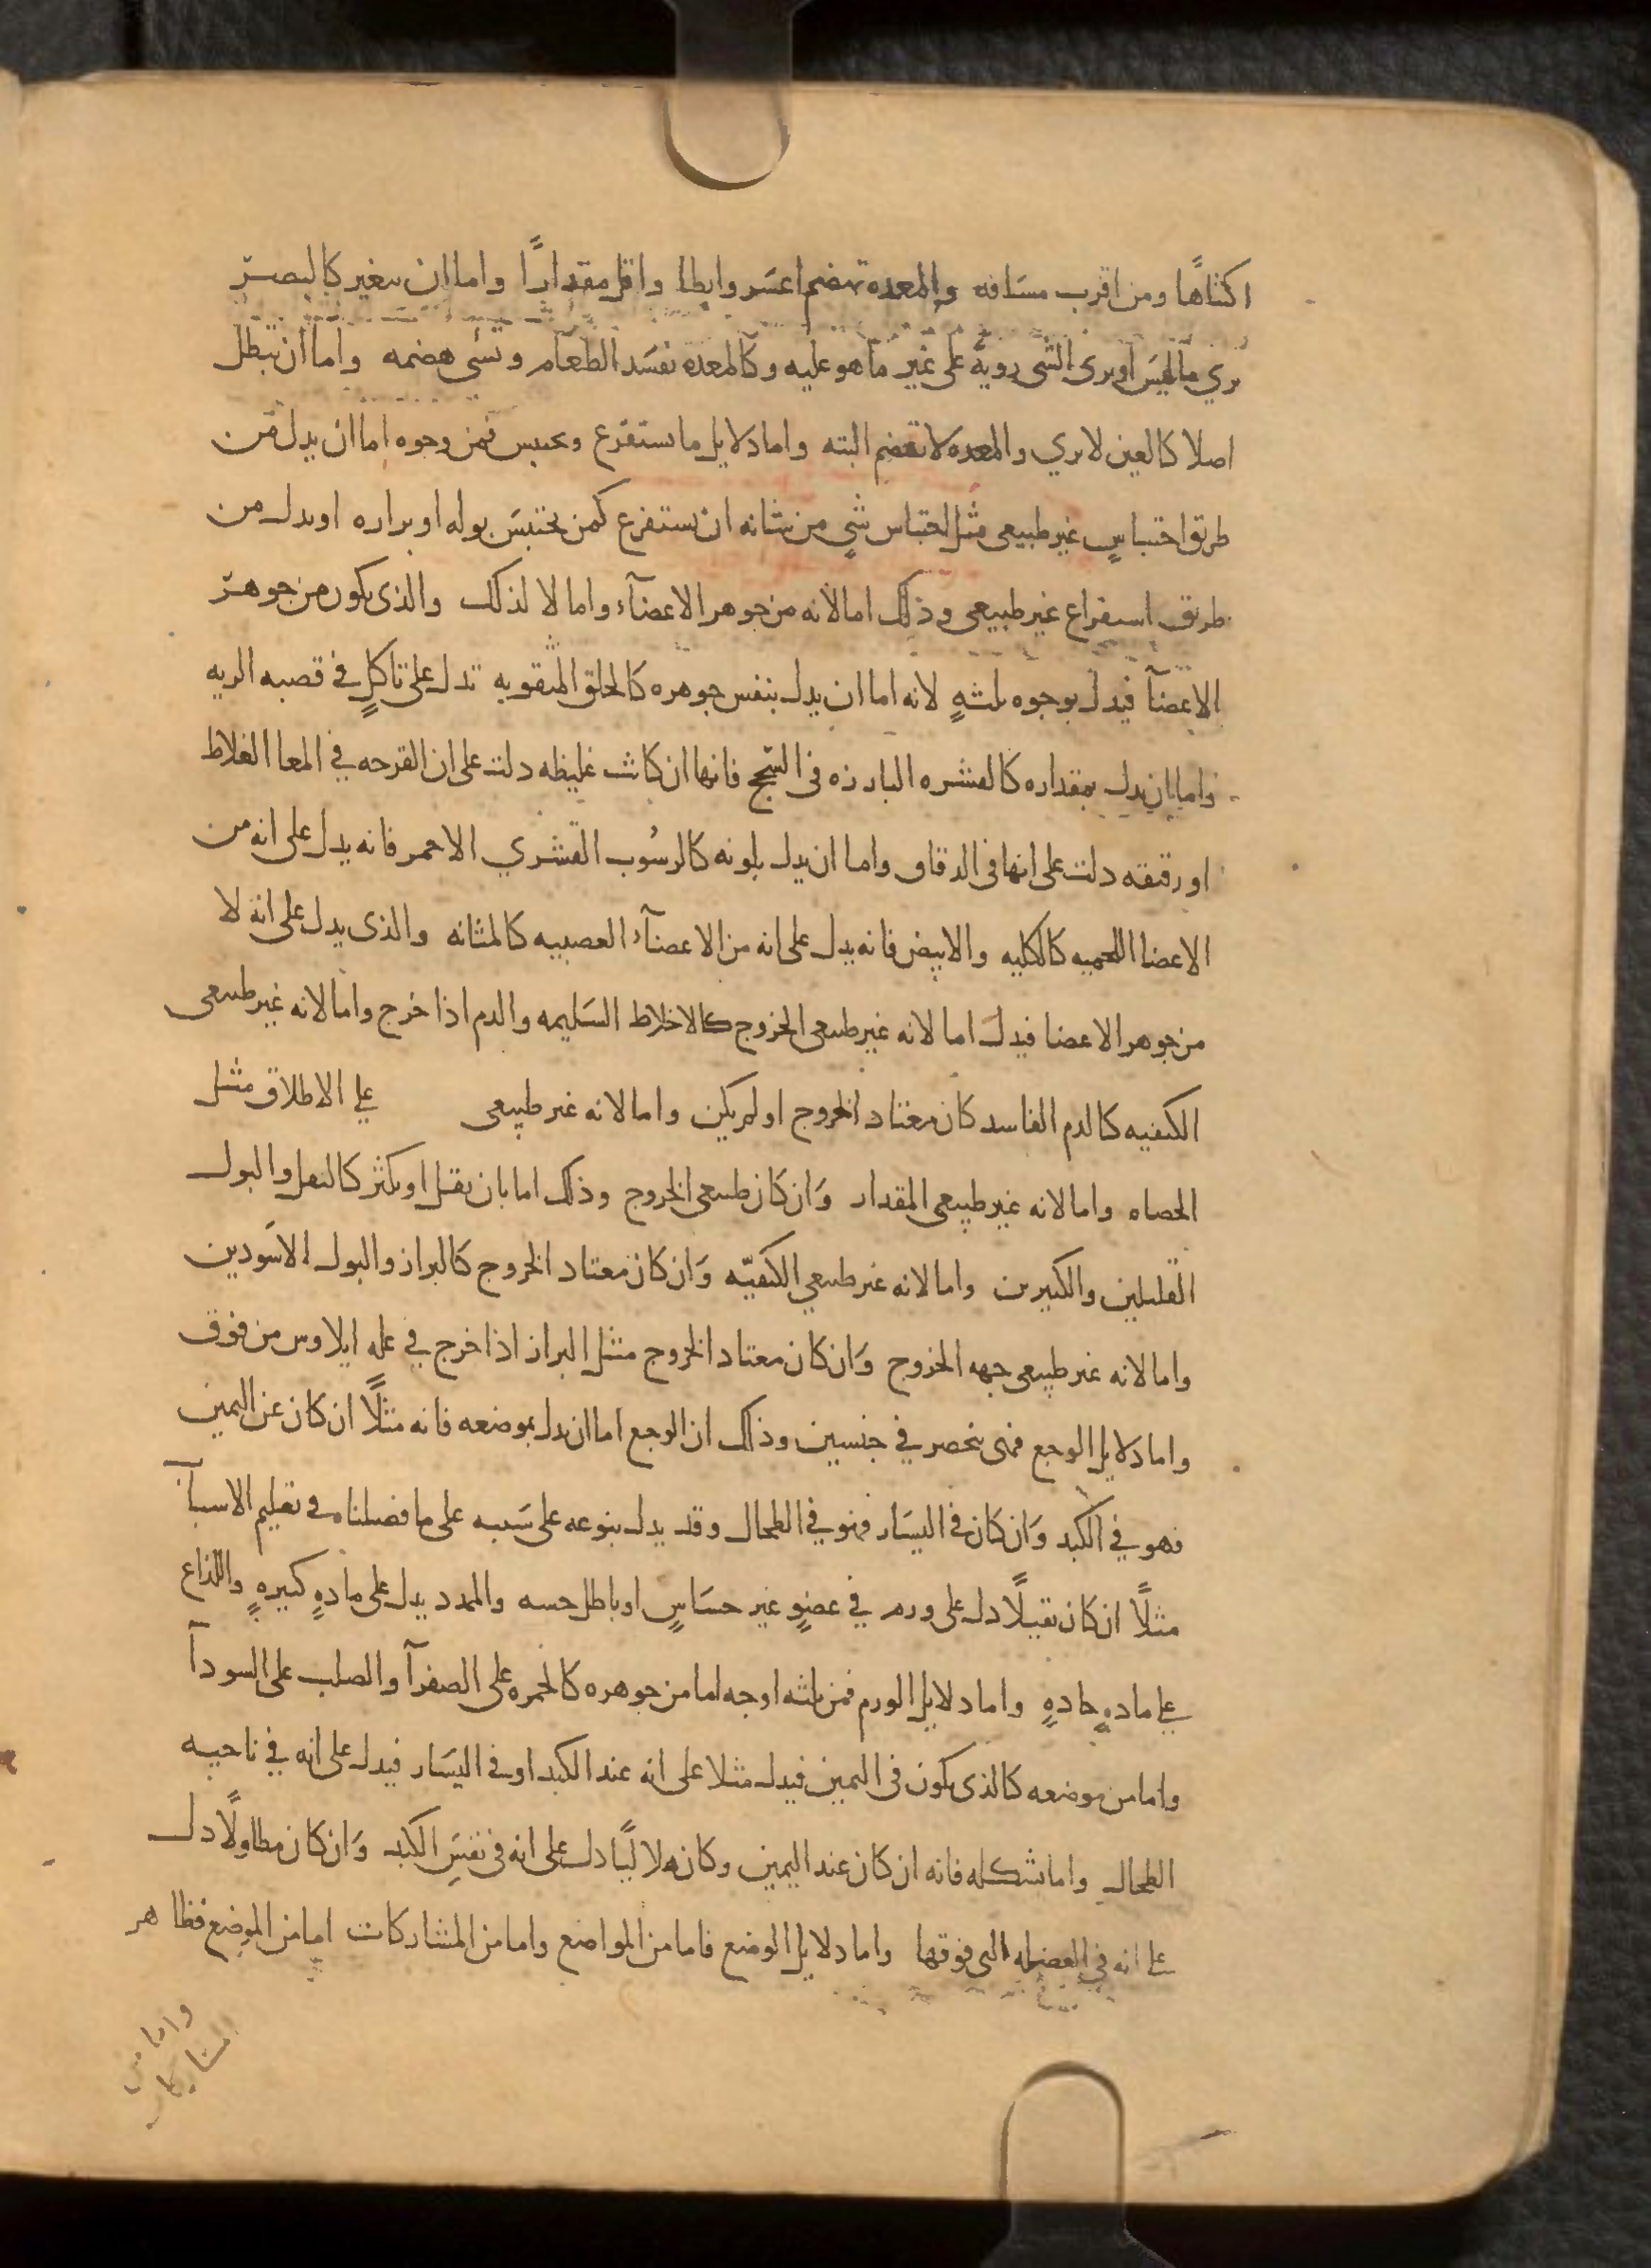 اكتناهًا ومن اقرب مسافه والمعده تهضم اعسر وابطا واقل مقدارًا واما ان يتغير كالبصر
يري ما ليس او يرى الشي رويةً على غير ما هو عليه وكالمعدة تفسد الطعام وتسي هضمه واما ان تبطل
اصلا كالعين لا يري والمعده لا تهضم البته واما دلايل ما يستفرغ ويحتبس فمن وجوه اما ان يدل من
طريق احتباسٍ غير طبيعي مثل احتباس شيٍ من شانه ان يستفرغ كمن يحتبس بوله او برازه او يدل من
طريق استفراغ غير طبيعي وذلك اما لانه من جوهر الاعضآء واما لا لذلك والذي يكون من جوهر
الاعضآ فيدل بوجوه ثلثهٍ لانه اما ان يدل بنفس جوهره كالحلق المنقوبه تدل على تاكلٍ في قصبه الريه
واما ان يدل بمقداره كالقشره البارزه في السحج فانها ان كانت غليظه دلت على ان القرحه في المعا الغلاط
او رقيقه دلت على انها في الدقاق واما ان يدل بلونه كالرسُوب القشري الاحمر فانه يدل على انه من
الاعضا اللحميه كالكليه والابيض فانه يدل على انه من الاعضآء العصبيه كالمثانه والذي يدل على انه لا
من جوهر الاعضا فيدل اما لانه غير طبيعي الخروج كالاخلاط السَليمه والدم اذا خرج واما لانه غير طبيعي
الكيفيه كالدم الفاسد كان معتاد الخروج او لم يكن واما لانه غير طبيعي على الاطلاق مثل
الحصاه واما لانه غير طبيعي المقدار وَان كان طبيعي الخروج وذلك اما بان يقل او يكثر كالثفل والبول
القليلين والكثيرين واما لانه غير طبيعي الكيفيّه وَان كان معتاد الخروج كالبراز والبول الاسَودين
واما لانه غير طبيعي جهه الخروج وَان كان معتاد الخروج مثل البراز اذا خرج في عله ايلاوس من فوق
واما دلايل الوجع فهي تنحصر في جنسين وذلك ان الوجع اما ان يدل بموضعه فانه مثلًا ان كان عن اليمين
فهو في الكبد وَان كان في اليسَار فهو في الطحال وقد يدل بنوعه على سَببه على ما فصلناه في تعليم الاسبآب
مثلًا ان كان ثقيلًا دل على ورم في عضوٍ غير حسَاسٍ او باطل حسه والممدد يدل على مادهٍ كثيرهٍ واللذاع
على مادهٍ حادهٍ واما دلايل الورم فمن ثلثه اوجه اما من جوهره كالحمره على الصفرآ والصلب على السودآ
واما من موضعه كالذي يكون في اليمين فيدل مثلا على انه عند الكبد او في اليسَار فيدل على انه في ناحيه
الطحال واما شكله فانه ان كان عند اليمين وكان هلاليًا دل على انه في نفسِ الكبد وَان كان مطاولًا دل
على انه في العضله التي فوقها واما دلايل الوضع فاما من المواضع واما من المشاركات اما من الموضع فظاهر
واما من
المشاركات